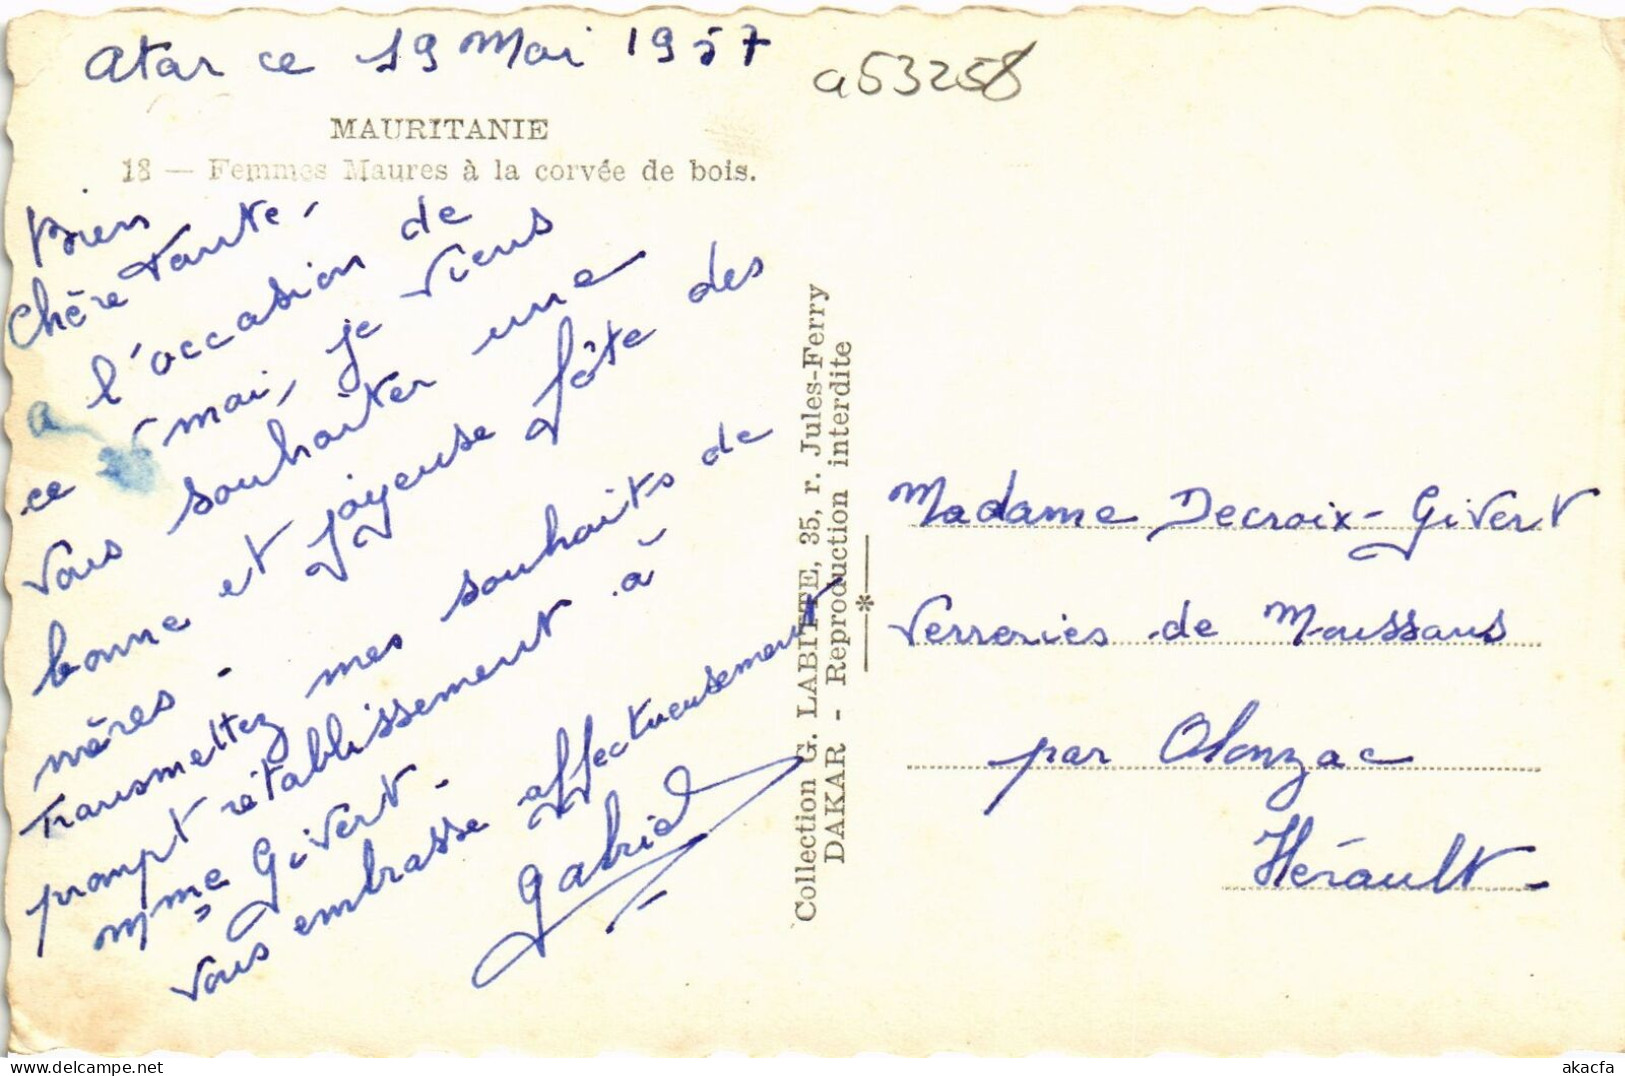 Atar ce 19 Mai 1957
a53258
MAURITANIE
18 — Femmes Maures à la corvée de bois.
Bien
Chère Tante,
a l'occasion de
ce mai, je viens
vous souhaiter une
bonne et joyeuse fête des
mères -
Transmettez mes souhaits de
prompt rétablissement à
Mme Givert -
vous embrasse affectueusement
Gabriel
Collection G. LABITTE, 35, r. Jules-Ferry
DAKAR - Reproduction interdite
Madame Decroix-Givert
Verreries de Moussans
par Olonzac
Hérault -
akacfa